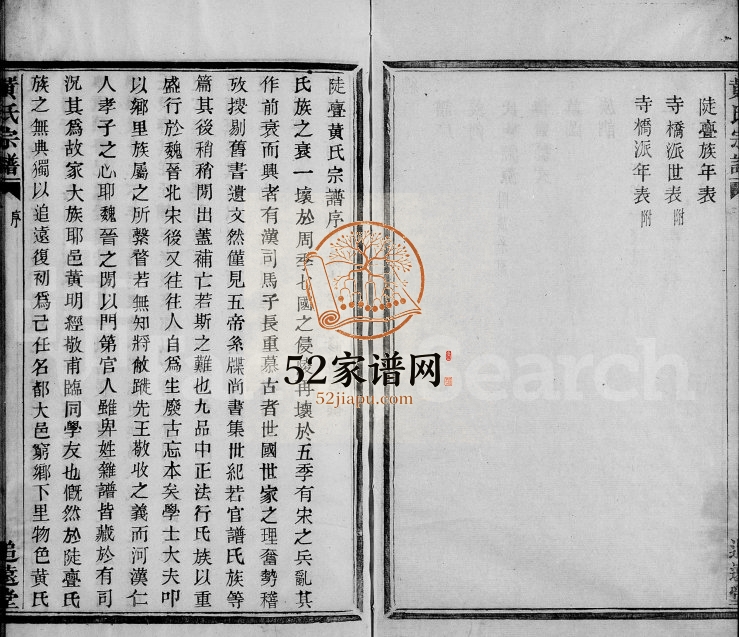 黃氏宗譜
追遠堂
陡亹族年表
寺橋派世表附
寺橋派年表附
陡亹黃氏宗譜序
氏族之衰一壞於周季七國之侵陵再壞於五季有宋之兵亂其
作前衰而興者有漢司馬子長重慕古者世國世家之理奮勢稽
攷搜剔舊書遺文然僅見五帝系牒尚書集世紀若官譜氏族等
篇其後稍稍閒出蓋補亡若斯之難也九品中正法行氏族以重
盛行於魏晉北宋後又往往人自為生廢古忘本矣學士大夫叩
以鄉里族屬之所繫瞀若無知將敝蹝先王敬收之義而河漢仁
人孝子之心耶魏晉之閒以門第官人雖卑姓雜譜皆藏於有司
況其為故家大族耶邑黃明經敬甫臨同學友也慨然於陡亹氏
族之無典獨以追遠復初為己任名都大邑窮鄉下里物色黃氏
黃氏宗譜
序
追遠堂
52家谱网
52jiapu.com
search